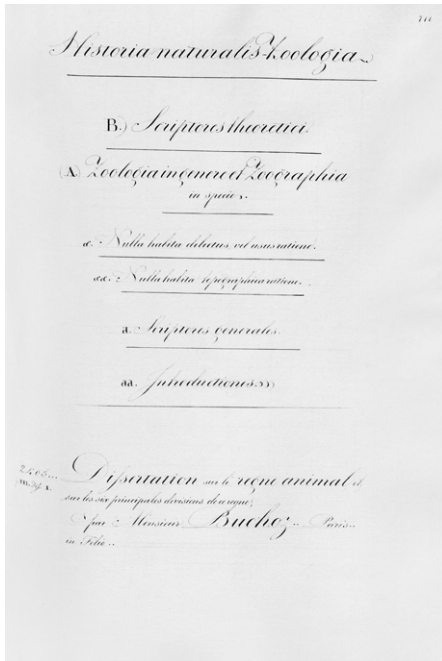 Historia naturalis Zoologia
B.) Scriptores theoretici.
(A Zoologia in genere et Zoographia
in specie.
α. Nulla habita delectus vel usus ratione.
αα. Nulla habita topographica ratione.
a Scriptores generales.
aa. Introductiones.
Dissertation sur le regne animal et
sur les six principales divisions de ce regne;
par Monsieur Buchoz.. Paris..
in Folio..